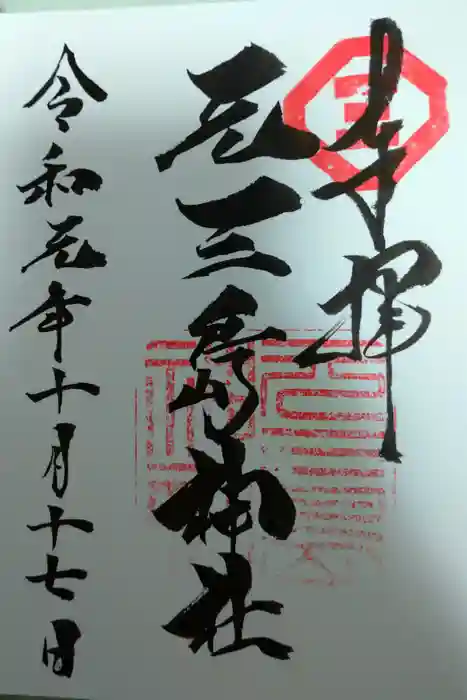 奉拝
三
元三島神社
令和元年十月十七日